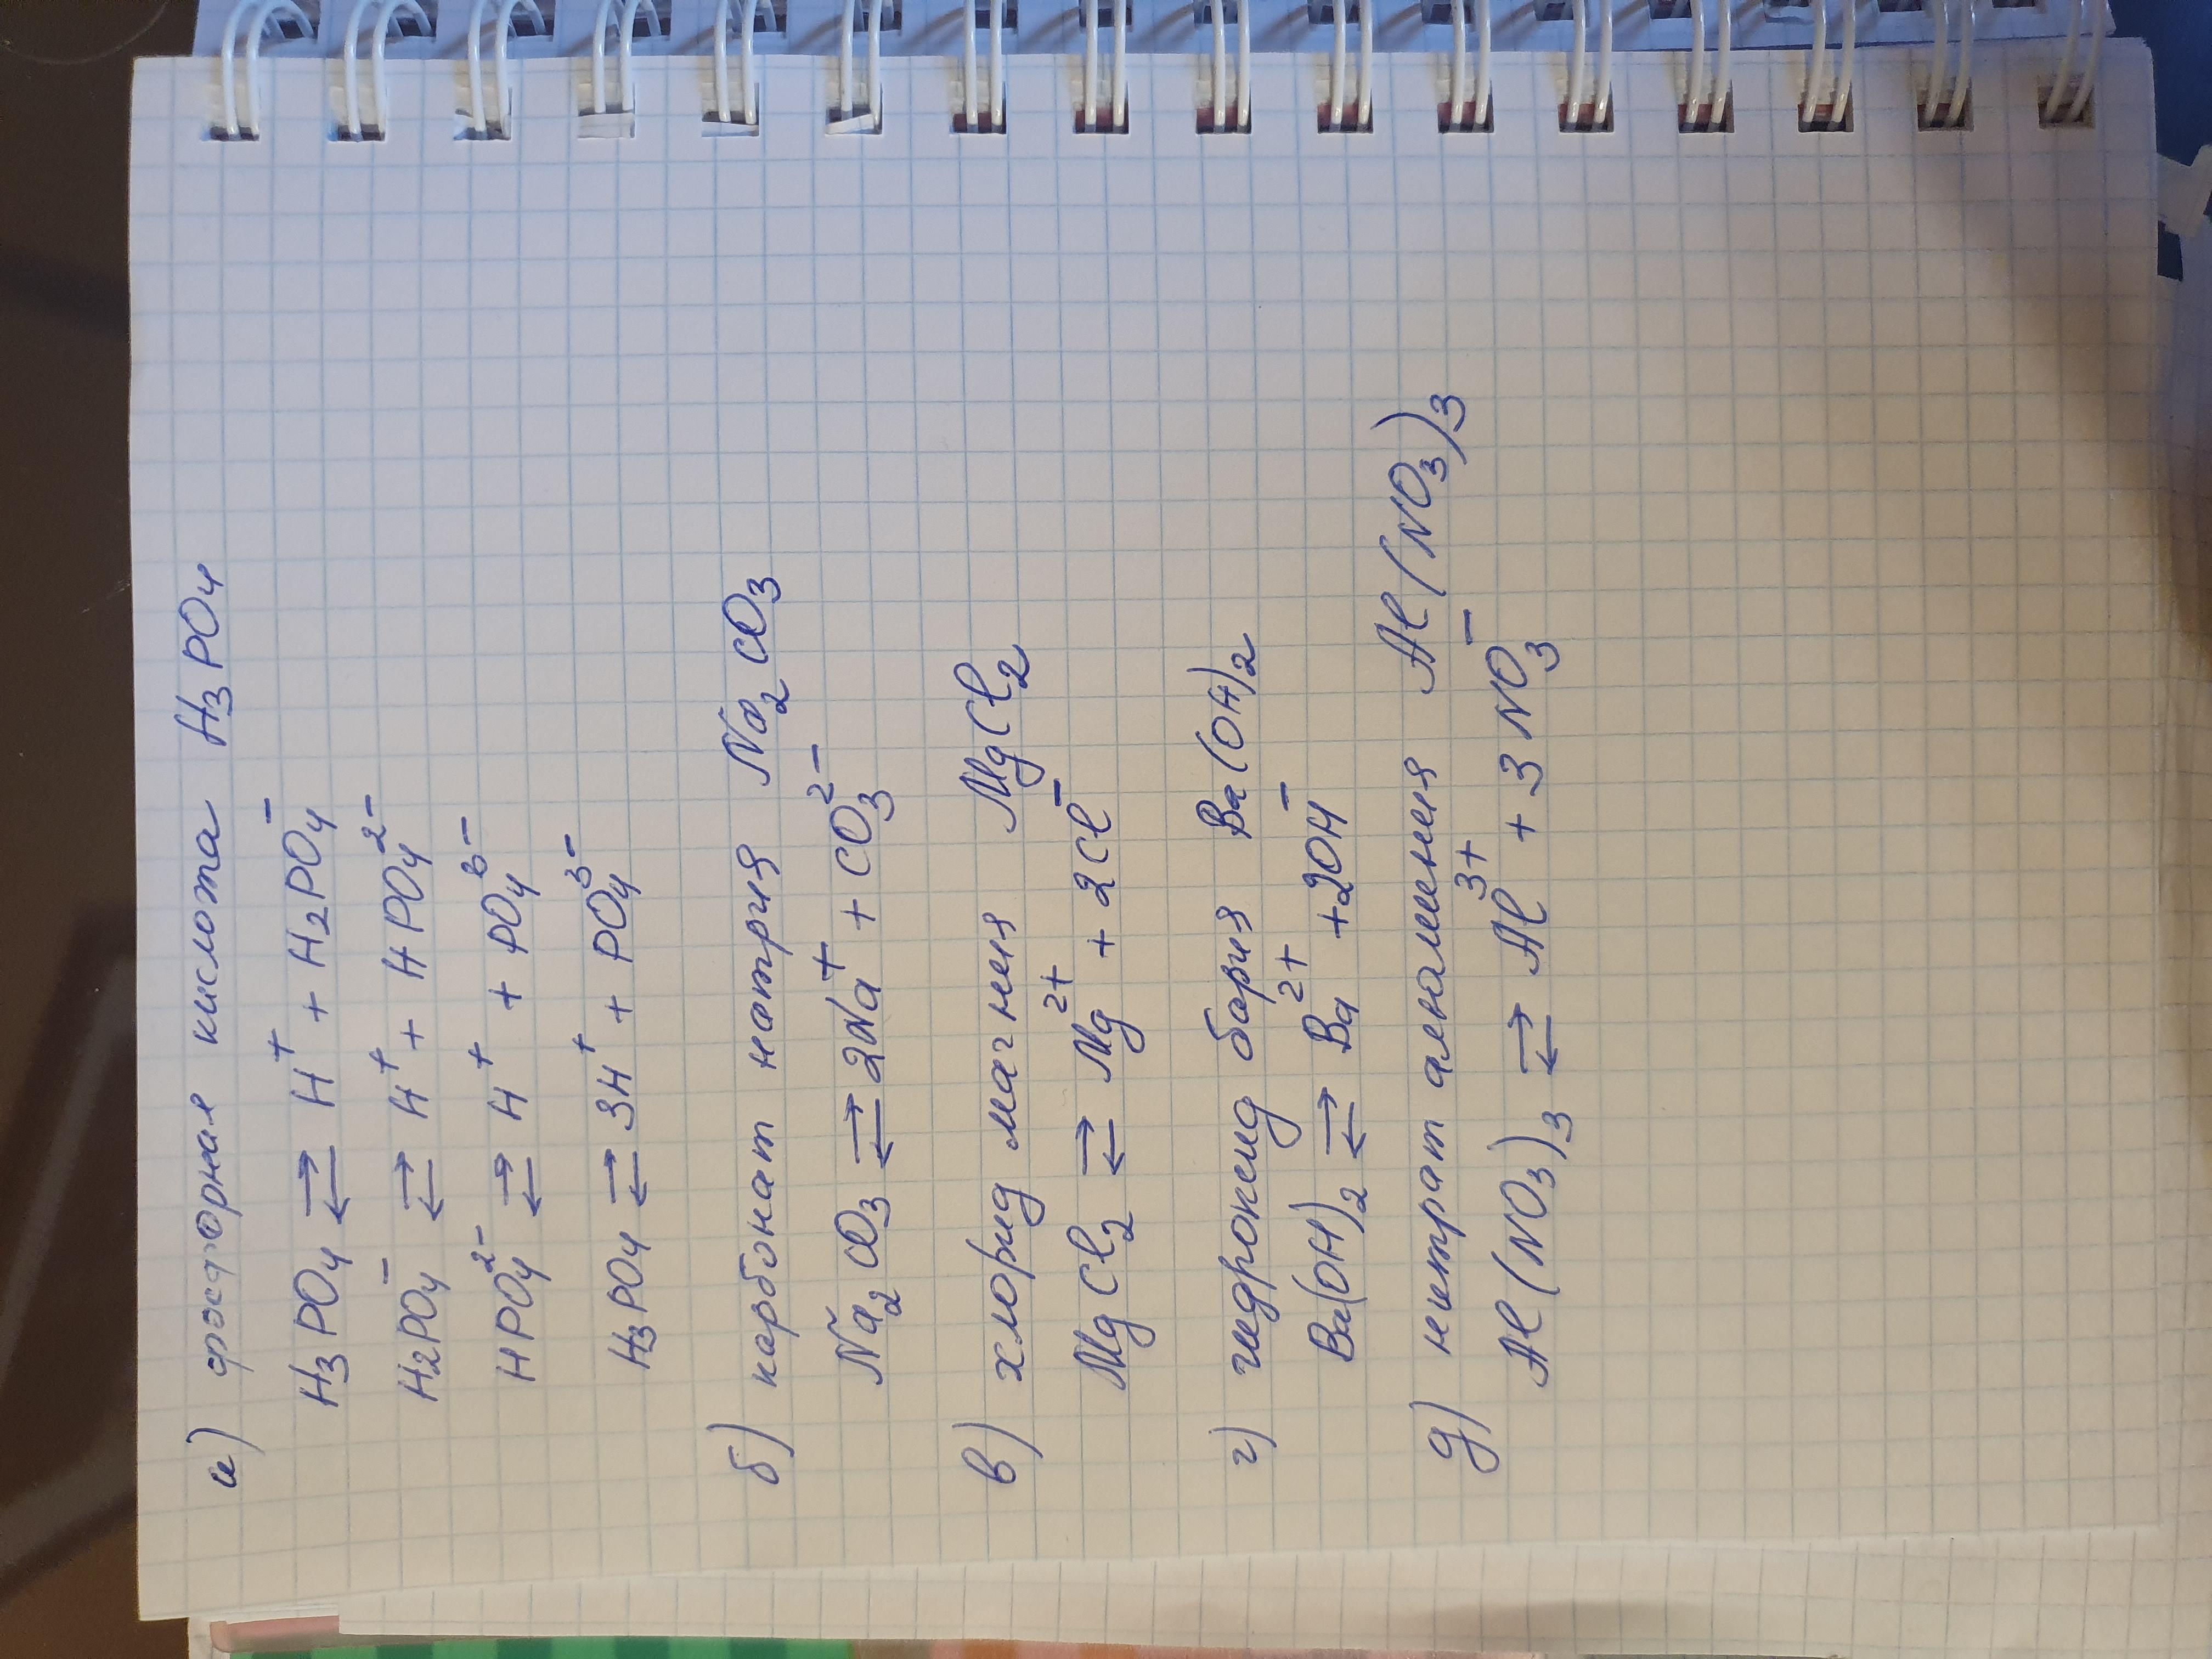 а) фосфорная кислота H₃PO₄
H₃PO₄ ⇄ H⁺ + H₂PO₄⁻
H₂PO₄⁻ ⇄ H⁺ + HPO₄²⁻
HPO₄²⁻ ⇄ H⁺ + PO₄³⁻
H₃PO₄ ⇄ 3H⁺ + PO₄³⁻
б) карбонат натрия Na₂CO₃
Na₂CO₃ ⇄ 2Na⁺ + CO₃²⁻
в) хлорид магния MgCl₂
MgCl₂ ⇄ Mg²⁺ + 2Cl⁻
г) гидроксид бария Ba(OH)₂
Ba(OH)₂ ⇄ Ba²⁺ + 2OH⁻
д) нитрат алюминия Al(NO₃)₃
Al(NO₃)₃ ⇄ Al³⁺ + 3NO₃⁻